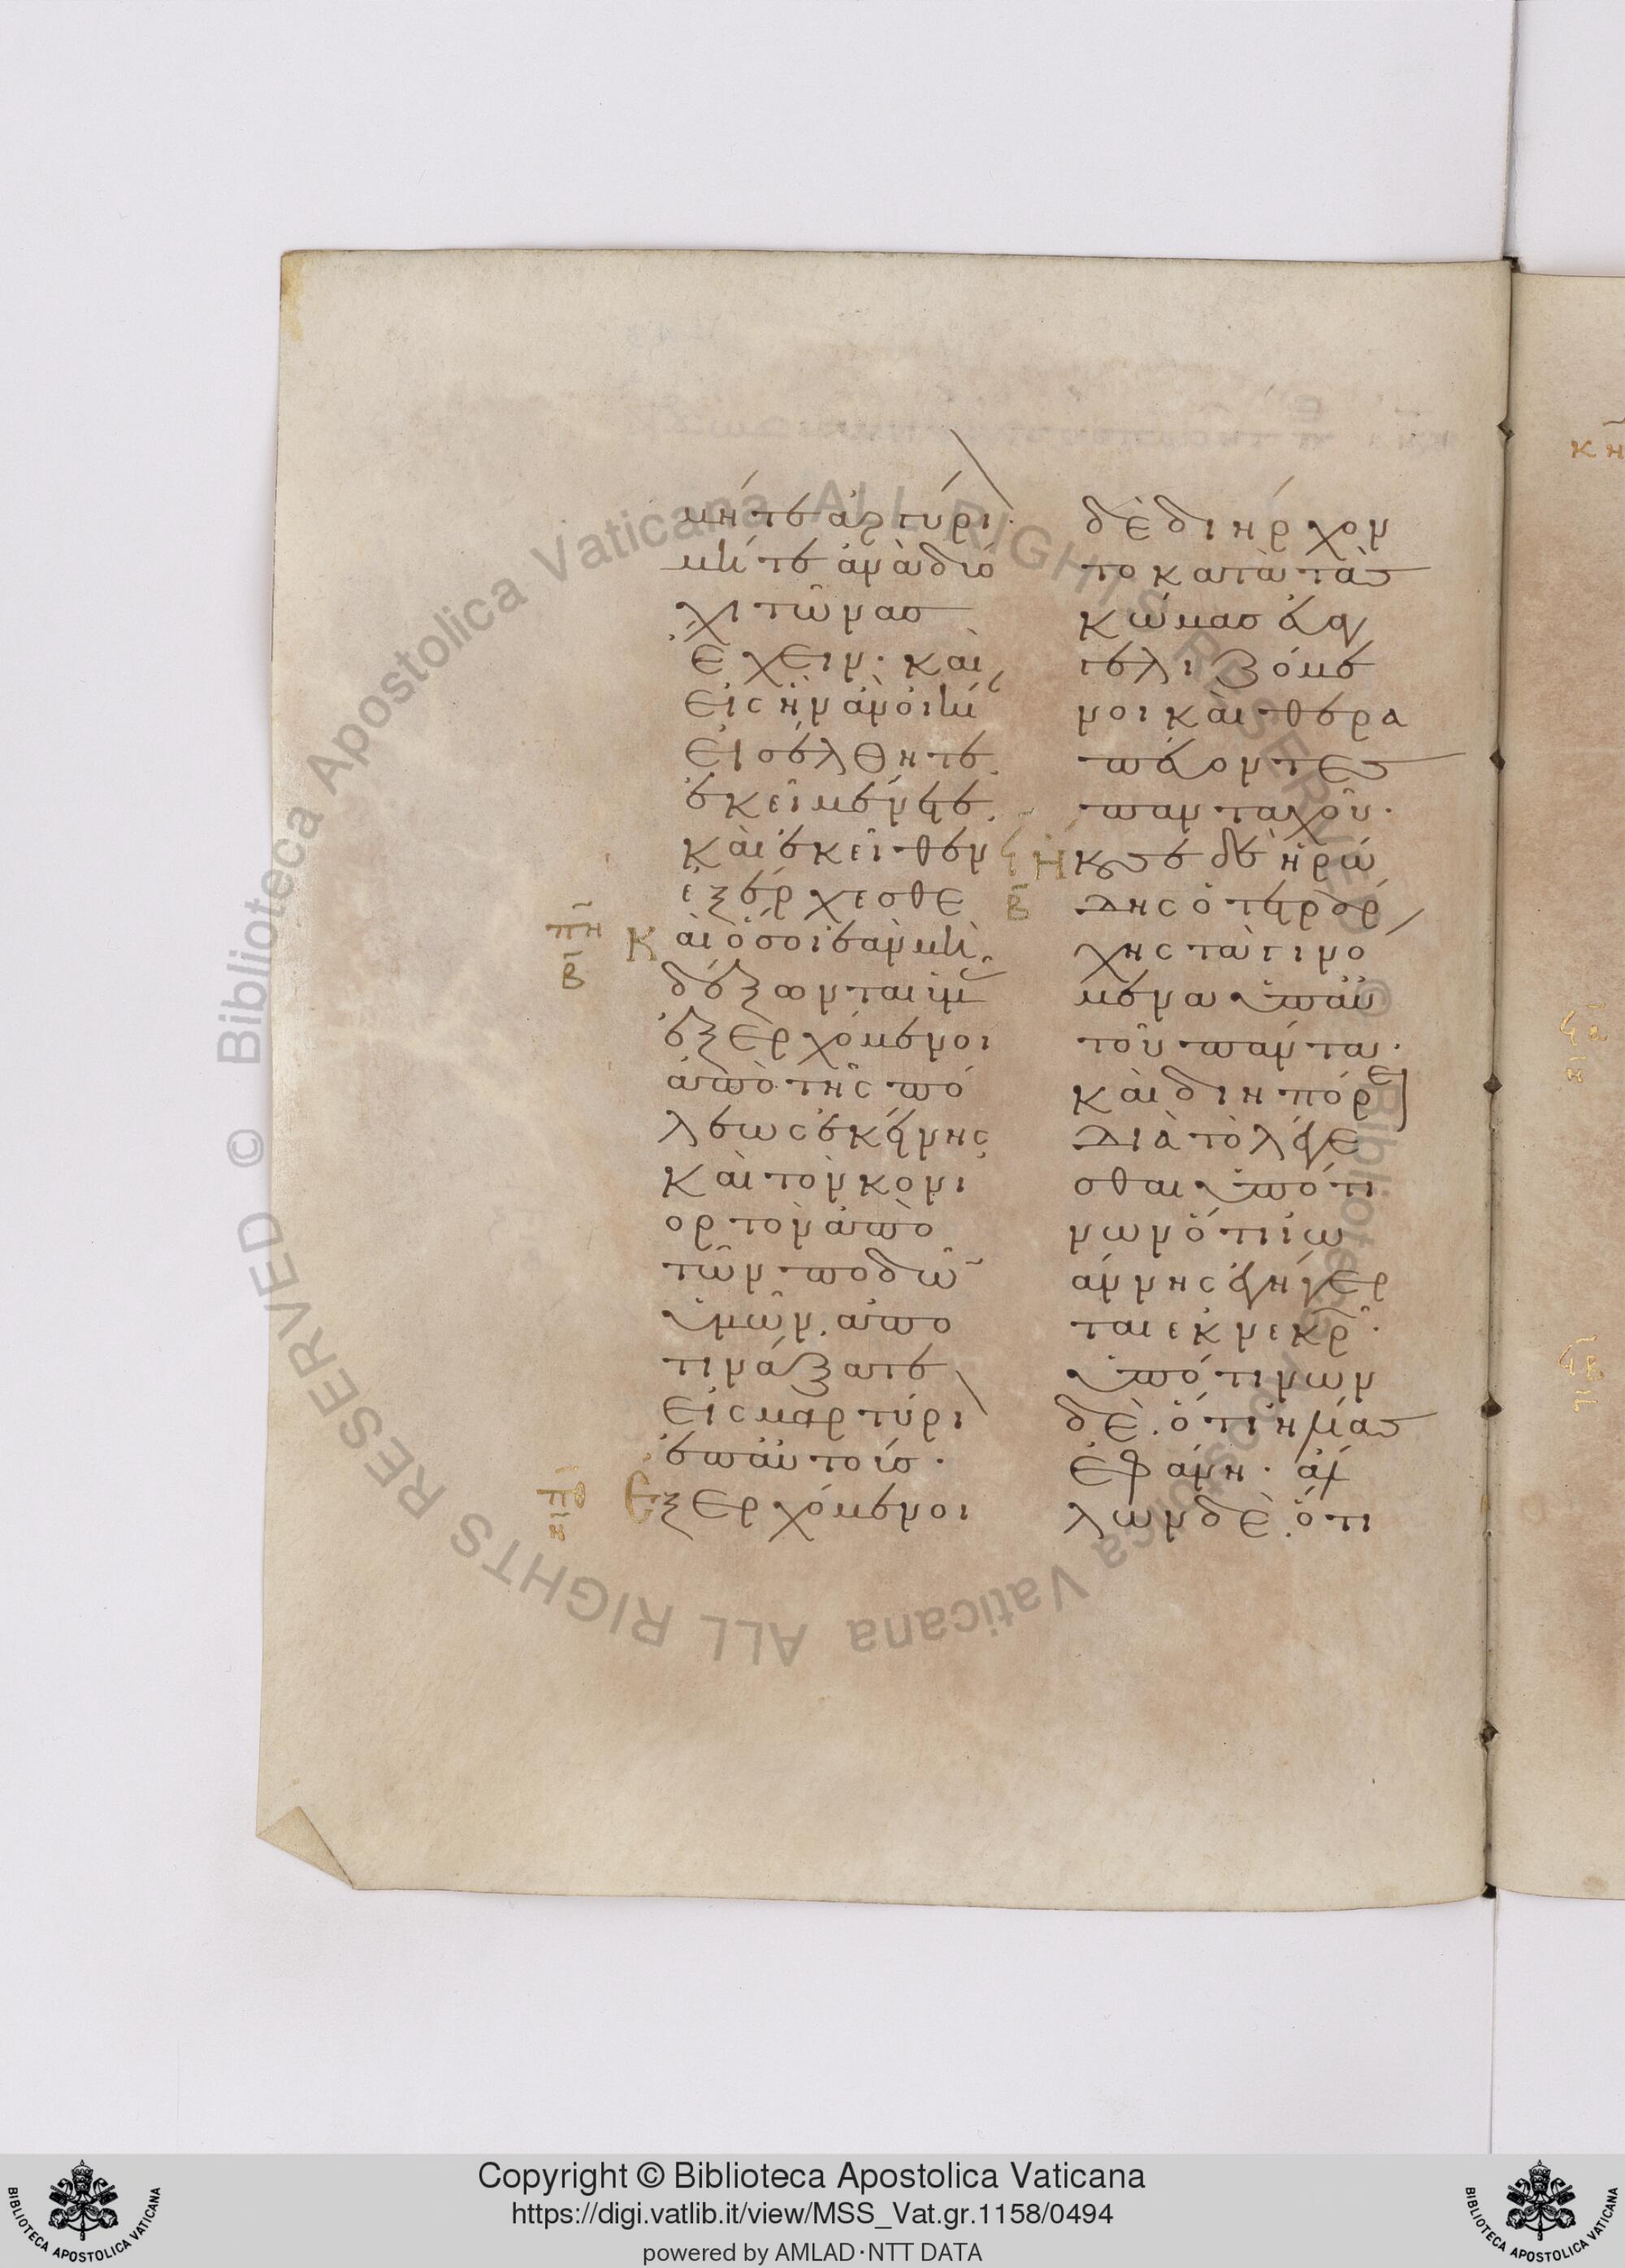 μήτε ἀργύρι·
μήτε ἀνὰ δύο
χιτῶνας
ἔχειν· καὶ
εἰς ἣν ἂν οἰκί
εἰσέλθητε,
ἐκεῖ μένετε,
καὶ ἐκεῖθεν
ἐξέρχεσθε
πη
β
Καὶ ὅσοι ἐὰν μὴ
δέξωνται ὑμ
ἐξερχόμενοι
ἀπὸ τῆς πό
λεως ἐκείνης
καὶ τὸν κονι
ορτὸν ἀπὸ
τῶν ποδῶ
ὑμῶν, ἀπο
τινάξατε
εἰς μαρτύρι
ἐπ αὐτοίσ·
πθ
η
Ἐξερχόμενοι
δὲ διήρχον
το κατὰ τὰσ
κώμασ εὐαγ
γελιζόμε
νοι καὶ θερα
πεύοντεσ
πανταχοῦ·
Ϟ
β
Ἤκουσε δὲ ἡρώ
δης ὁ τετράρ
χης τὰ γινό
μενα ὑπ αὐ
τοῦ πάντα·
καὶ διηπόρει
διὰ τὸ λέγε
σθαι ὑπό τι
νων ὅτι ἰω
άννης ἐγήγερ
ται ἐκ νεκρ·
ὑπό τινων
δὲ. ὅτι ἠλίασ
ἐφάνη· ἄλ
λων δὲ. ὅτι
κη
Ϟβ
Ϟβ
© Biblioteca Apostolica Vaticana ALL RIGHTS RESERVED
© Biblioteca Apostolica Vaticana ALL RIGHTS RESERVED
Copyright © Biblioteca Apostolica Vaticana
https://digi.vatlib.it/view/MSS_Vat.gr.1158/0494
powered by AMLAD·NTT DATA
BIBLIOTECA APOSTOLICA VATICANA
BIBLIOTECA APOSTOLICA VATICANA